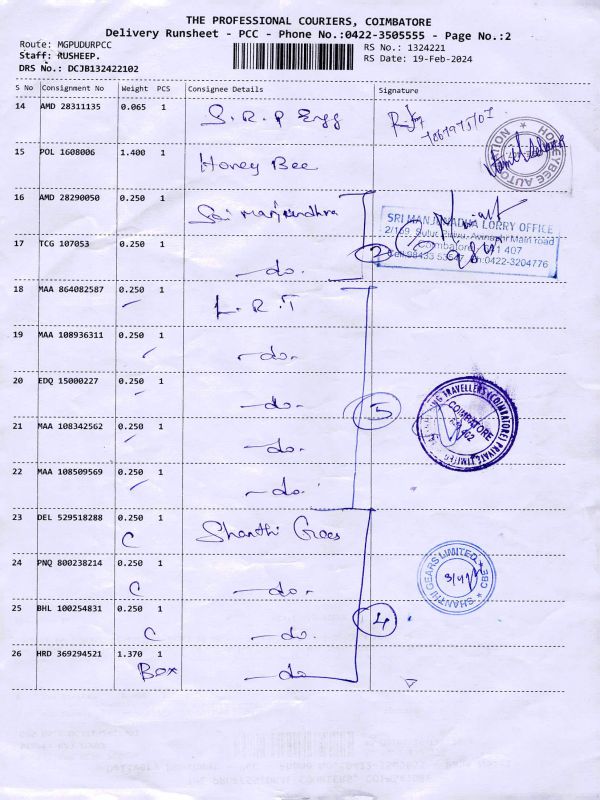 THE PROFESSIONAL COURIERS, COIMBATORE
Delivery Runsheet - PCC - Phone No.:0422-3505555 - Page No.:2
Route: MGPUDURPCC
Staff: RUSHEEP.
DRS No.: DCJB132422102
RS No.: 1324221
RS Date: 19-Feb-2024
S No Consignment No Weight PCS Consignee Details Signature
14 AMD 28311135 0.065 1 S.R.P Engg
15 POL 1608006 1.400 1 Honey Bee
HONEYBEE AUTOMATION
16 AMD 28290050 0.250 1 Sai
17 TCG 107053 0.250 1 -do.
2
SRI MANJUNADHA LORRY OFFICE
Avinashi Main road
Coimbatore 641 407
Cell:98433 53647 Ph:0422-3204776
18 MAA 864082587 0.250 1 L.R.T
19 MAA 108936311 0.250 1 -do.
20 EDQ 15000227 0.250 1 -do.
21 MAA 108342562 0.250 1 -do.
22 MAA 108509569 0.250 1 -do.
5
TRAVELLERS (COIMBATORE) PRIVATE LIMITED
COIMBATORE
23 DEL 529518288 0.250 1 Shanthi Gears
C
24 PNQ 800238214 0.250 1 -do.
C
25 BHL 100254831 0.250 1 -do.
C
26 HRD 369294521 1.370 1 -do
Box
4
SHANTHI GEARS LIMITED * CBE *